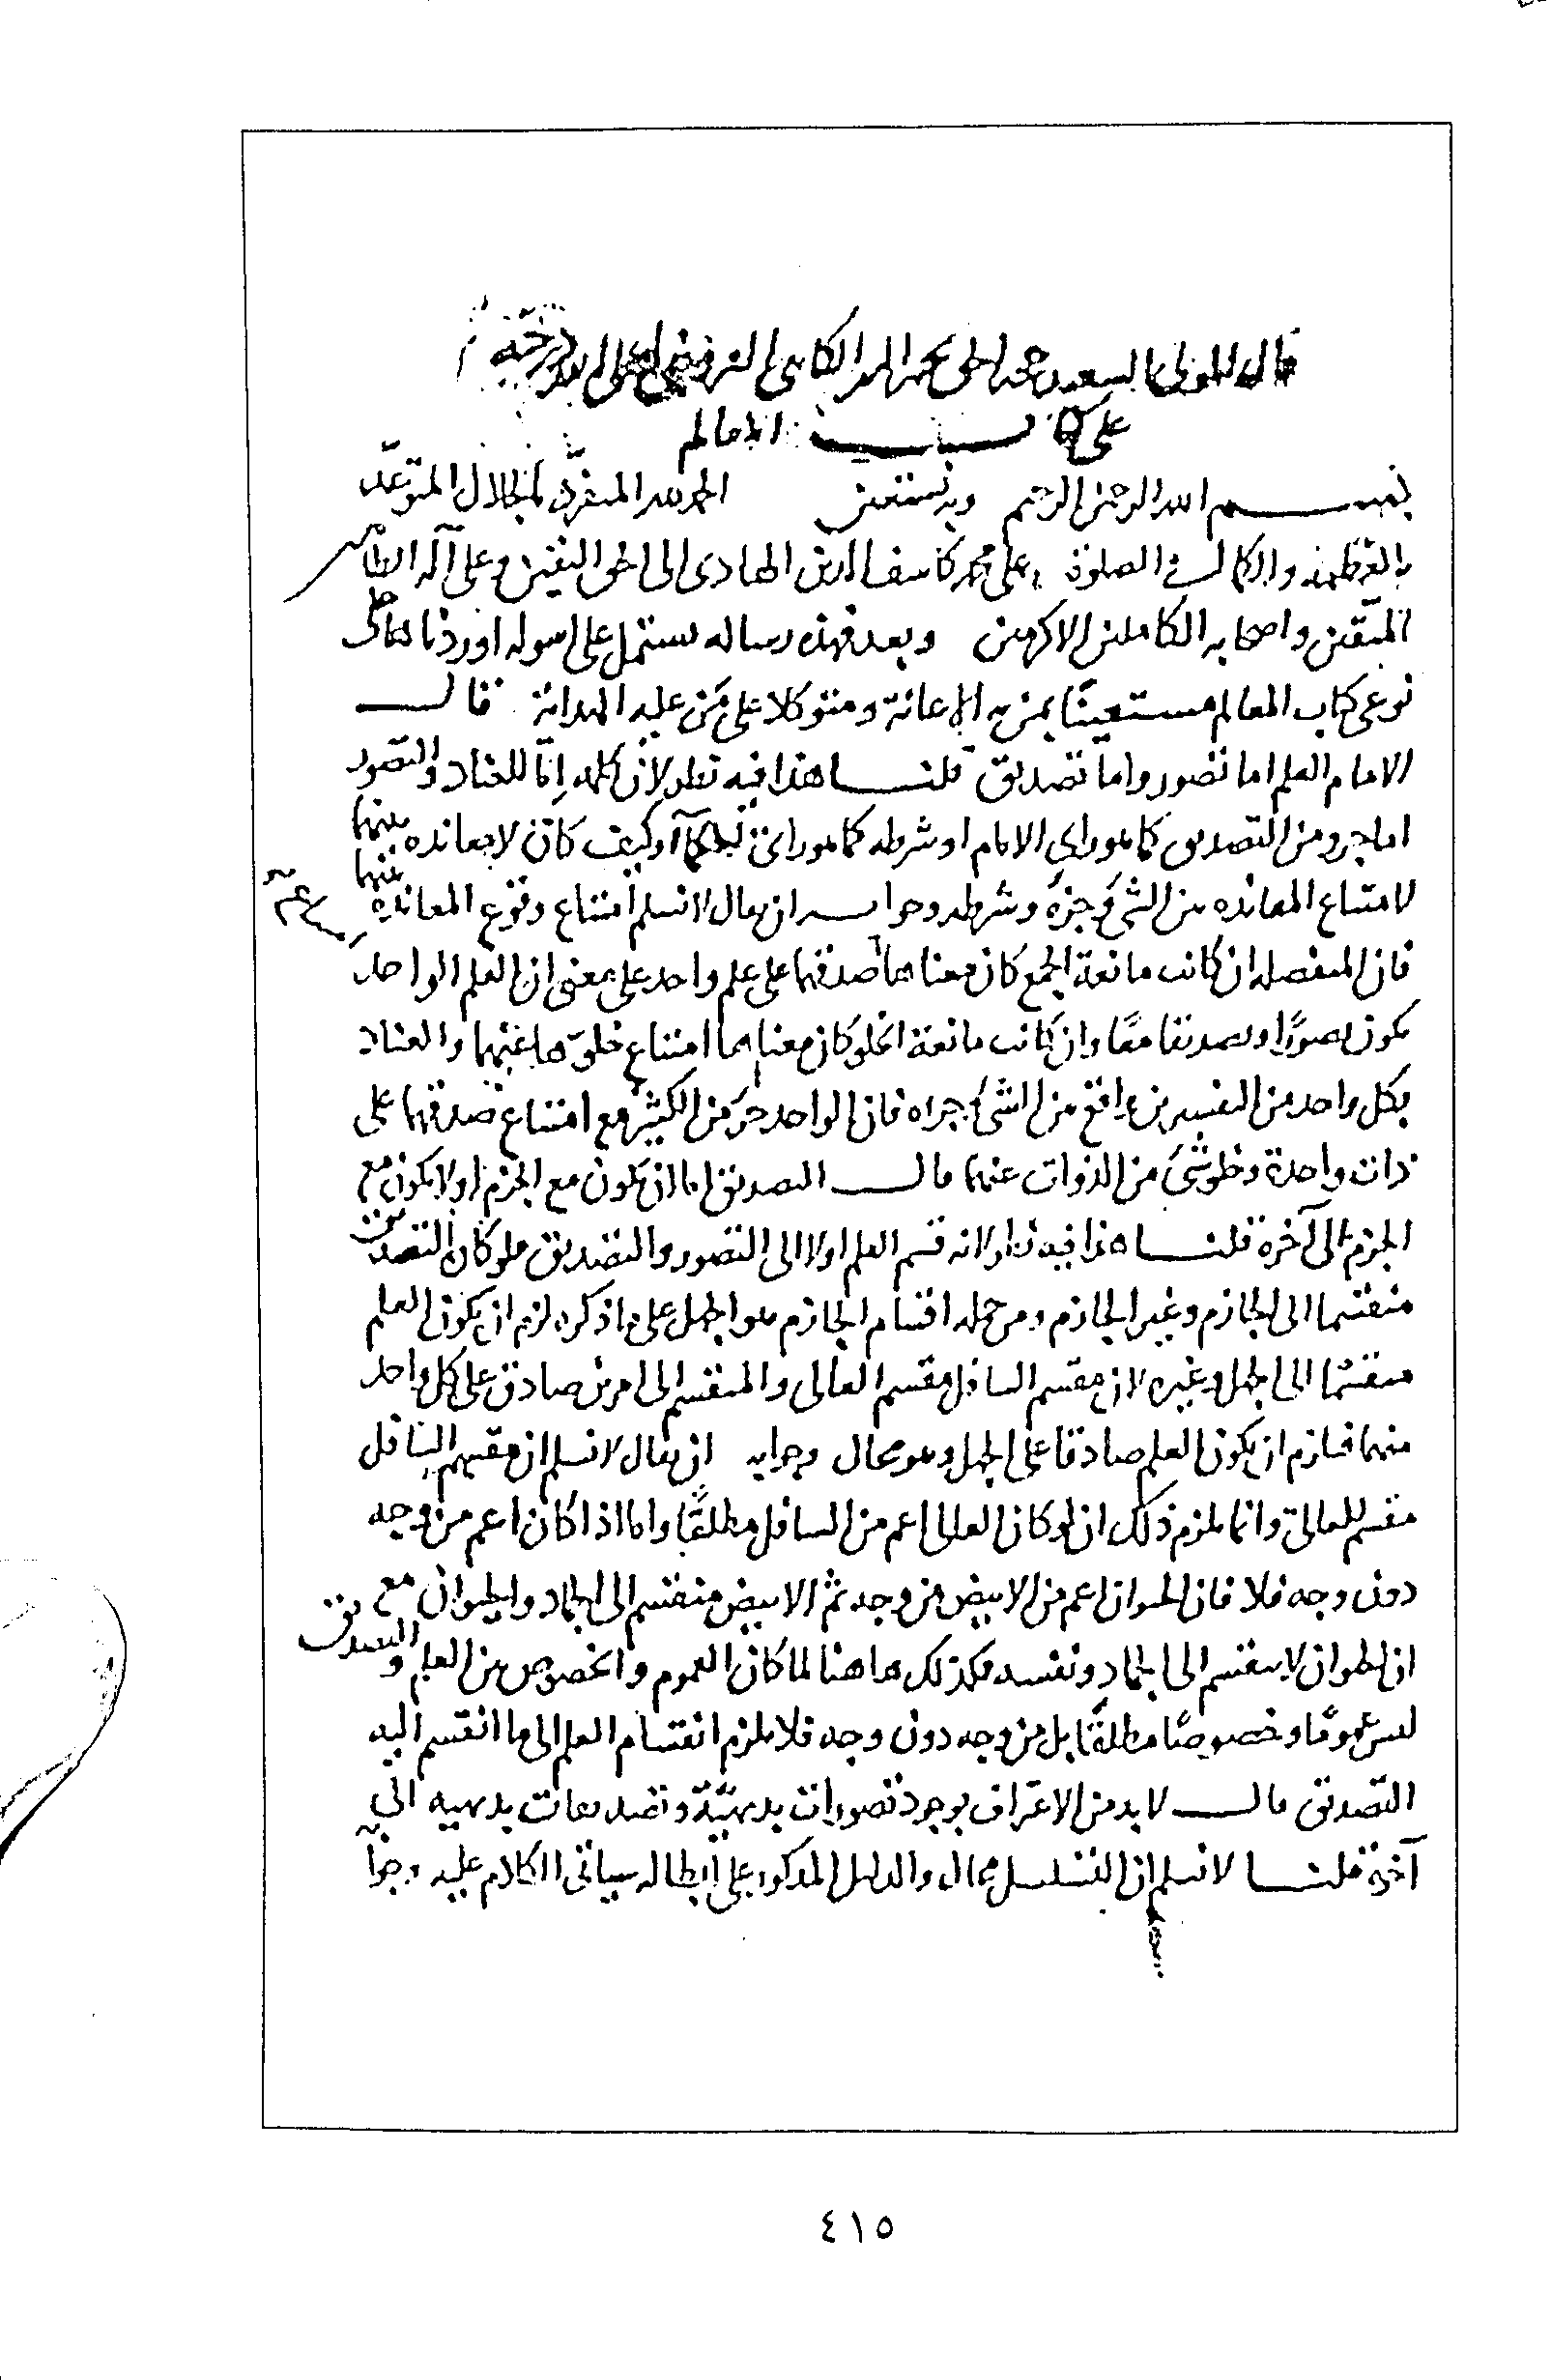 قال المولى السعيد حجة الحق نجم الدين الكاتبي القزويني
على كتاب المعالم
بسم الله الرحمن الرحيم وبه نستعين الحمد لله المتفرد بالجلال المتوحد
بالعظمة والكمال والصلوة على محمد كاشف الدين الهادى الى الحق اليقين وعلى آله الطاهرين
المتقين واصحابه الكاملين الاكرمين وبعد فهذه رسالة تشتمل على اسولة اوردناها على
نوعى كتاب المعالم مستعينًا بمن به الاعانة ومتوكلا على من عليه الهداية قال
الامام العلم اما تصور واما تصديق قلنا هذا فيه نظر لان كلمة إمّا للعناد والتصور
اما جزو من التصديق كما هو راى الامام او شرطه كما هو راى الحكماء وكيف كان لا معانده بينهما
لامتناع المعانده بين الشئ وجزئه وشرطه وجوابه ان يقال لا نسلم امتناع وقوع المعانده بينهما
فان المنفصلة ان كانت مانعة الجمع كان معناها صدقهما على علم واحد على معنى ان العلم الواحد
يكون تصورًا وتصديقا معًا وان كانت مانعة الخلو كان معناهما امتناع خلوّها عنهما والعناد
بكل واحد من التفسيرين واقع بين الشئ وجزئه فان الواحد جزء من الكثير مع امتناع صدقهما على
ذات واحدة وخلو شئ من الذوات عنهما قال التصديق اما ان يكون مع الجزم او لا يكون مع
الجزم الى آخره قلنا هذا فيه نظر لانه قسم العلم اولا الى التصور والتصديق فلو كان التصديق
منقسما الى الجازم وغير الجازم ومن جملة اقسام الجازم هو الجهل على ما ذكره لزم ان يكون العلم
منقسمًا الى الجهل وغيره لان مقسم السافل مقسم العالى والمنقسم الى امرين صادق على كل واحد
منهما فيلزم ان يكون العلم صادقا على الجهل وهو محال وجوابه ان يقال لا نسلم ان مقسم السافل
مقسم للعالى وانما يلزم ذلك ان لو كان العالى اعم من السافل مطلقًا واما اذا كان اعم من وجه
دون وجه فلا فان الحيوان اعم من الابيض من وجه ثم الابيض منقسم الى الجماد والحيوان مع
ان الحيوان لا ينقسم الى الجماد ونفسه فكذلك هاهنا لما كان العموم والخصوص بين العلم والتصديق
ليس عمومًا وخصوصًا مطلقًا بل من وجه دون وجه فلا يلزم انقسام العلم الى ما انقسم اليه
التصديق قال لا بد من الاعتراف بوجود تصورات بديهيّة وتصديقات بديهية الى
آخره قلنا لا نسلم ان التسلسل محال والدليل المذكور على ابطاله سياتى الكلام عليه وجوابه
٤١٥